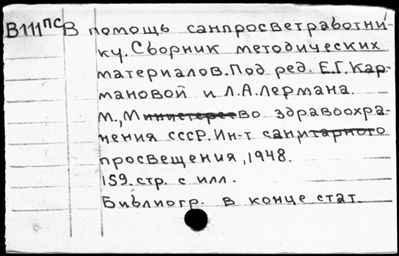 В111пс В помощь санпросветработни-
ку. Сборник методических
материалов. Под ред. Е.Г. Кар-
мановой и Л.А. Лермана.
М., Министерство здравоохра-
нения СССР. Ин-т санитарного
просвещения, 1948.
159. стр. с илл.
Библиогр. в конце стат.